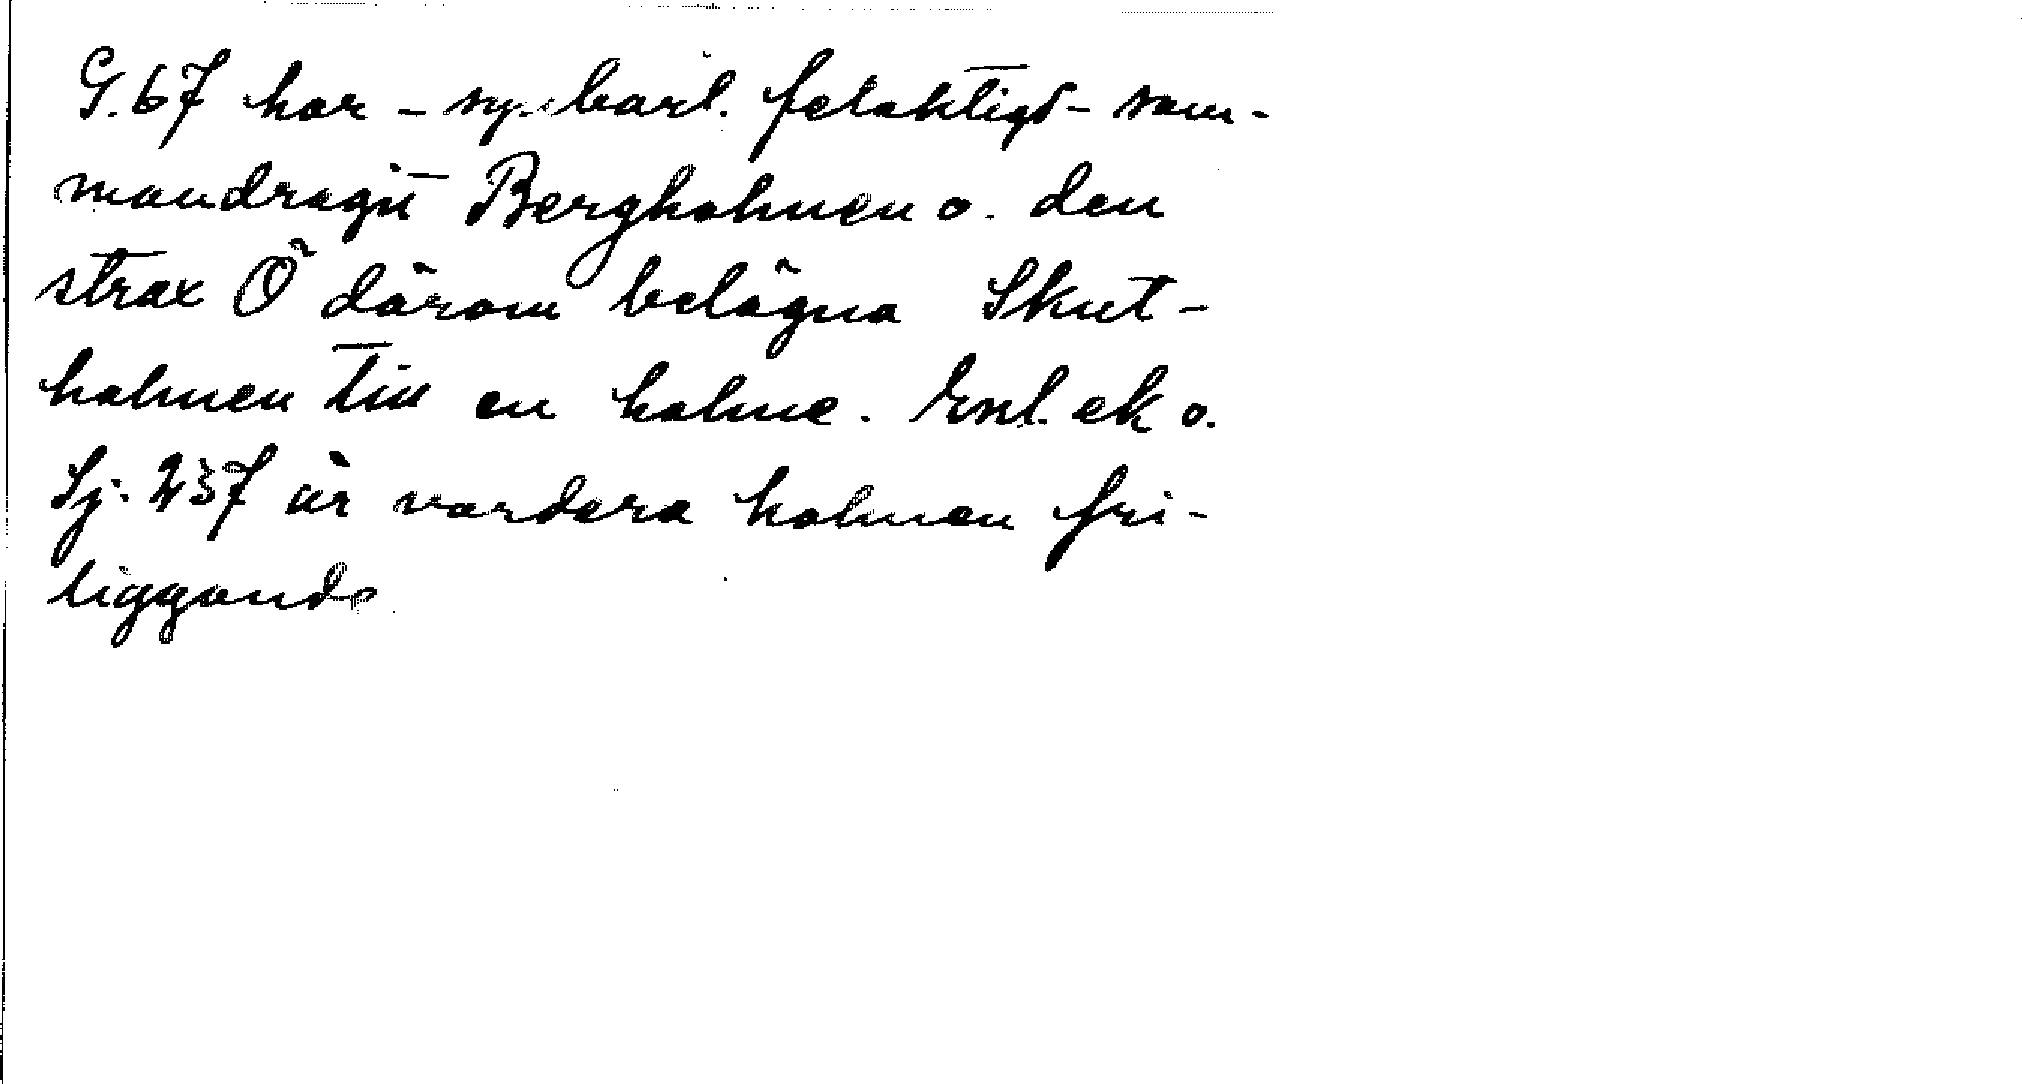 G. 67 har – synbarl. felaktigt – sam-
mandragit Bergholmen o. den
strax Ö därom belägna Skut-
holmen till en holme. Enl. ek o.
Sj. 237 är vardera holmen fri-
liggande